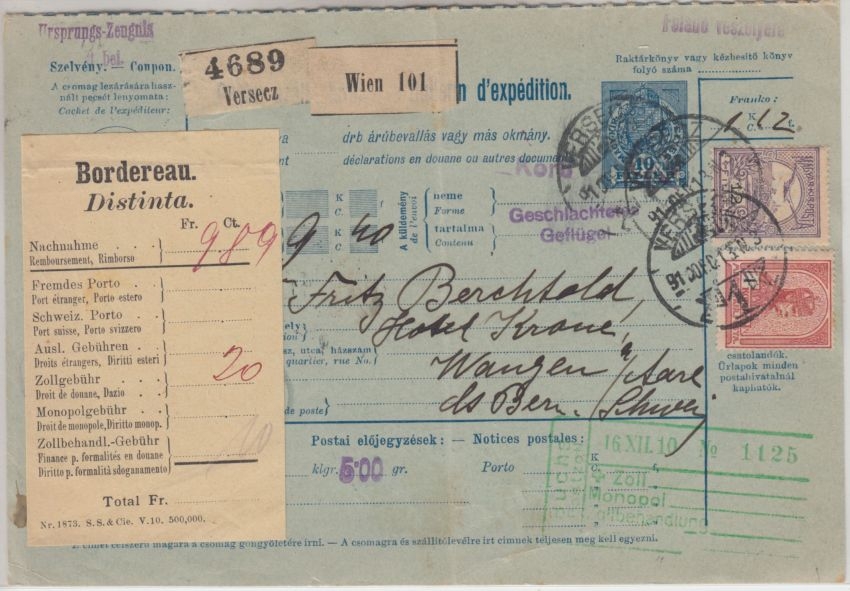 Ursprungs-Zeugnis
bei.
Szelvény. — Coupon.
A csomag lezárására hasz-
nált pecsét lenyomata:
Cachet de l'expéditeur:
4689
Versecz
Wien 101
d'expédition.
Raktárkönyv vagy kézbesitő könyv
folyó száma
Franko:
K
C.
f.
112
10
drb árúbevallás vagy más okmány.
déclarations en douane ou autres documents
Korb
Geschlachtetes
Geflügel
K
C.
K
C.
A küldemény
de l'envoi
neme
Forme
tartalma
Contenu
9 40
Fritz Berchtold,
Hotel Krone,
Wangen a/Aare
ds Bern, Schweiz
utca, házszám
quartier, rue No.
de poste)
csatolandók.
Űrlapok minden
postahivatalnál
kaphatók.
Bordereau.
Distinta.
Fr. Ct.
Nachnahme . . .
Remboursement, Rimborso
989
Fremdes Porto .
Port étranger, Porto estero
Schweiz. Porto .
Port suisse, Porto svizzero
Ausl. Gebühren .
Droits étrangers, Diritti esteri
Zollgebühr . .
Droit de douane, Dazio
20
Monopolgebühr .
Droit de monopole, Diritto monop.
Zollbehandl.-Gebühr
Finance p. formalités en douane
Diritto p. formalità sdoganamento
10
Total Fr.
Nr. 1873. S. S. & Cie. V. 10. 500,000.
Postai előjegyzések: — Notices postales:
klgr. 500 gr.
Porto
K
C.
f.
16 XII. 10 No 1125
Zoll
Monopol
E czimet célszerű magára a csomag göngyöletére irni. — A csomagra és szállitólevélre irt cimnek teljesen meg kell egyezni.